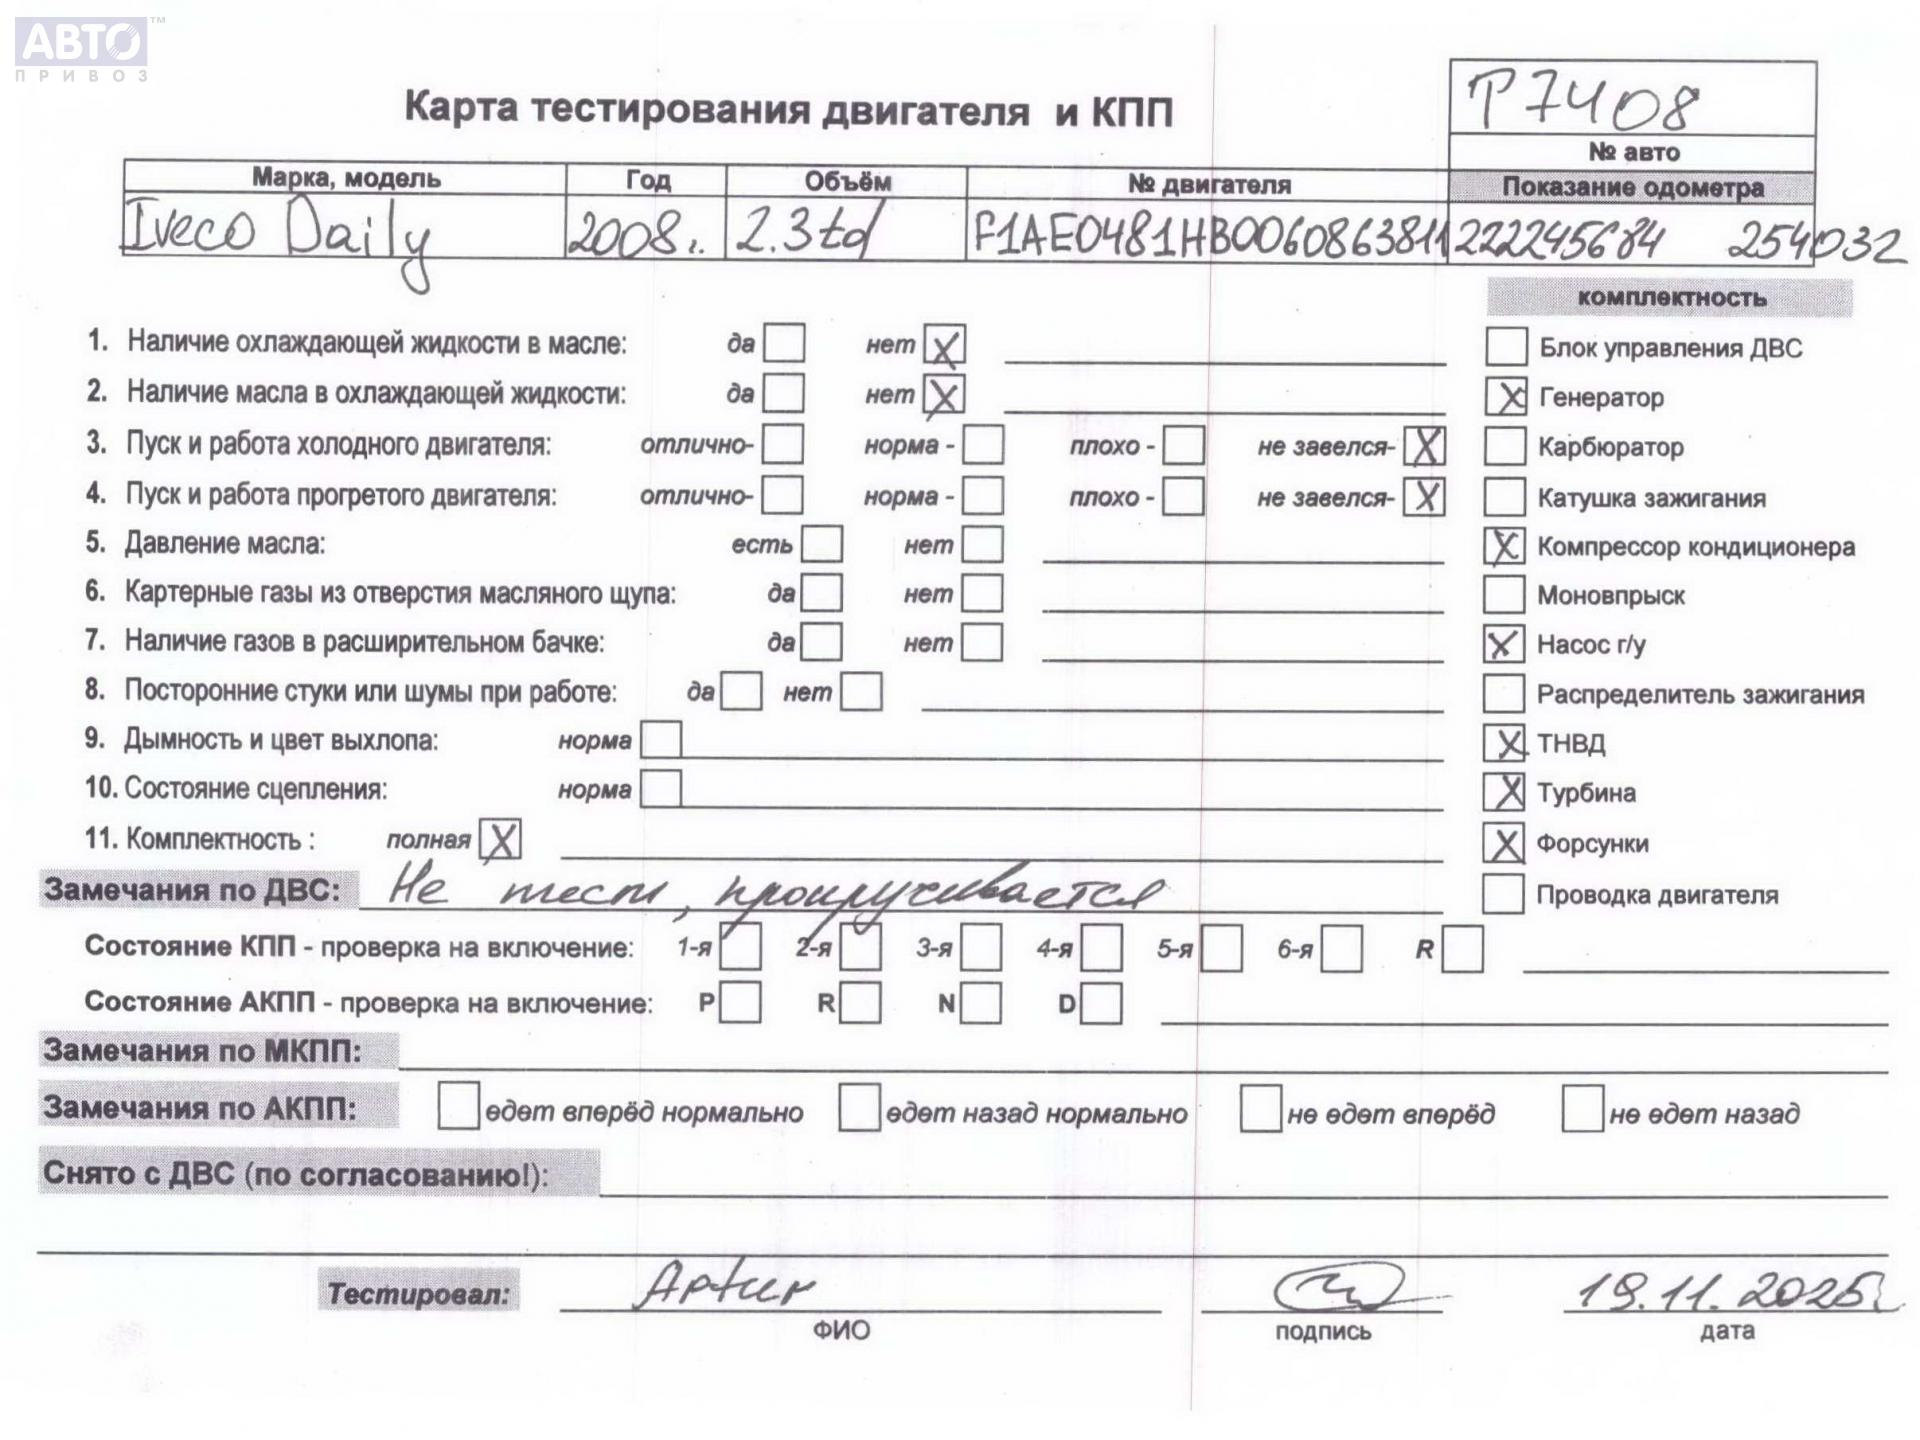 АВТО™
ПРИВОЗ
Карта тестирования двигателя и КПП
Т7408
№ авто
Марка, модель Год Объём № двигателя Показание одометра
Iveco Daily 2008г. 2.3td F1AE0481HB0060863811 222245684 254032
комплектность
1. Наличие охлаждающей жидкости в масле: да нет X Блок управления ДВС
2. Наличие масла в охлаждающей жидкости: да нет X X Генератор
3. Пуск и работа холодного двигателя: отлично- норма - плохо - не завелся- X Карбюратор
4. Пуск и работа прогретого двигателя: отлично- норма - плохо - не завелся- X Катушка зажигания
5. Давление масла: есть нет X Компрессор кондиционера
6. Картерные газы из отверстия масляного щупа: да нет Моновпрыск
7. Наличие газов в расширительном бачке: да нет X Насос г/у
8. Посторонние стуки или шумы при работе: да нет Распределитель зажигания
9. Дымность и цвет выхлопа: норма X ТНВД
10. Состояние сцепления: норма X Турбина
11. Комплектность : полная X X Форсунки
Замечания по ДВС: Не тест, прокручивается Проводка двигателя
Состояние КПП - проверка на включение: 1-я 2-я 3-я 4-я 5-я 6-я R
Состояние АКПП - проверка на включение: P R N D
Замечания по МКПП:
Замечания по АКПП: едет вперёд нормально едет назад нормально не едет вперёд не едет назад
Снято с ДВС (по согласованию!):
Тестировал: Artur 19.11.2025г.
ФИО подпись дата